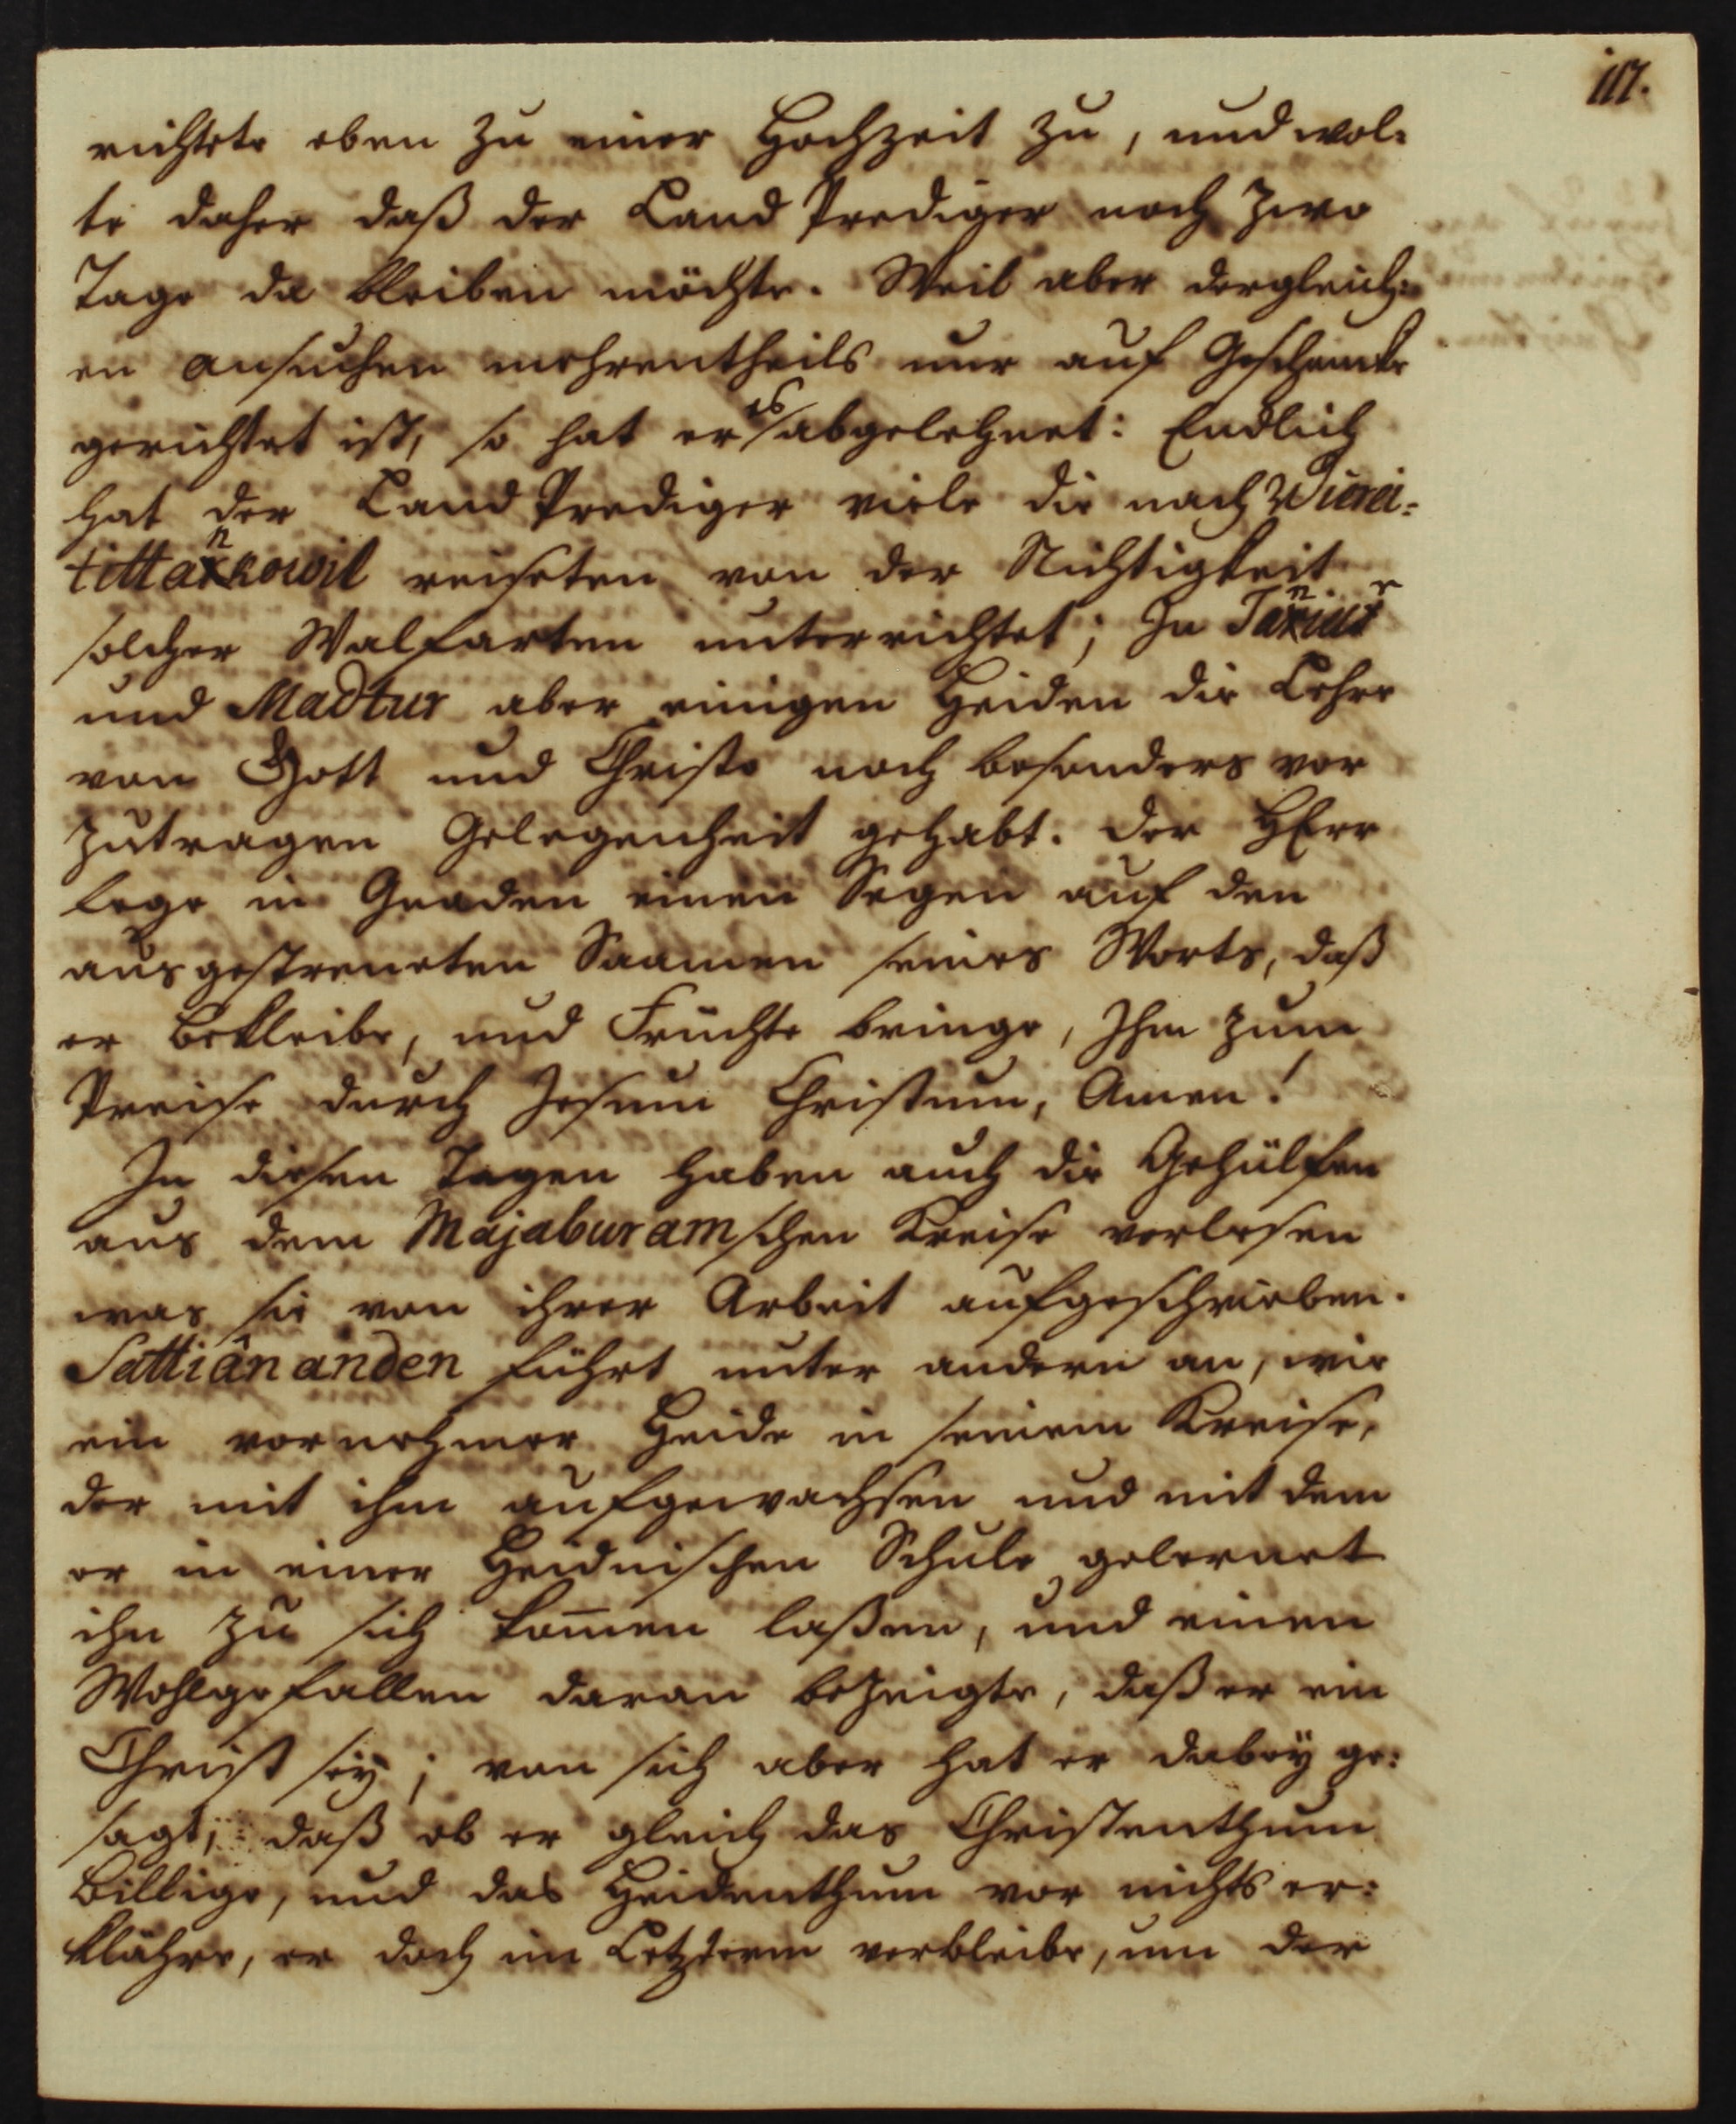 117.
richtete eben zu einer Hochzeit zu, und wol-
te daher daß der Land Prediger noch zwo
Tage da bleiben möchte. Weil aber dergleich-
en ansuchen mehrentheils nur auf Geschencke
gerichtet ist, so hat er es abgelehnet: Endlich
hat der Land Prediger viele die nach Wierei-
tittankowil reiseten von der Nichtigkeit
solcher Walfarten unterrichtet; In
und Madtur aber einigen Heiden die Lehre
von Gott und Christo noch besonders vor
zutragen Gelegenheit gehabt. der HErr
lege in Gnaden einen Segen auf den
ausgestreueten Saamen seines Worts, daß
er bekleibe, und Früchte bringe, Ihm zum
Preise durch Jesum Christum, Amen!
In diesen Tagen haben auch die Gehülfen
aus dem Majaburamschen Kreise verlesen
was sie von ihrer Arbeit aufgeschrieben.
Sattiânanden führt unter andern an, wie
ein vornehmer Heide in seinem Kreise,
der mit ihm aufgewachsen und mit dem
er in einer Heidnischen Schule gelernet
ihn zu sich kom̄en laßen, und einen
Wohlgefallen daran bezeigte, daß er ein
Christ sey; von sich aber hat er dabey ge-
sagt, daß ob er gleich das Christenthum
billige, und das Heidenthum vor nichts er-
klähre, er doch im Letztern verbleibe, um der